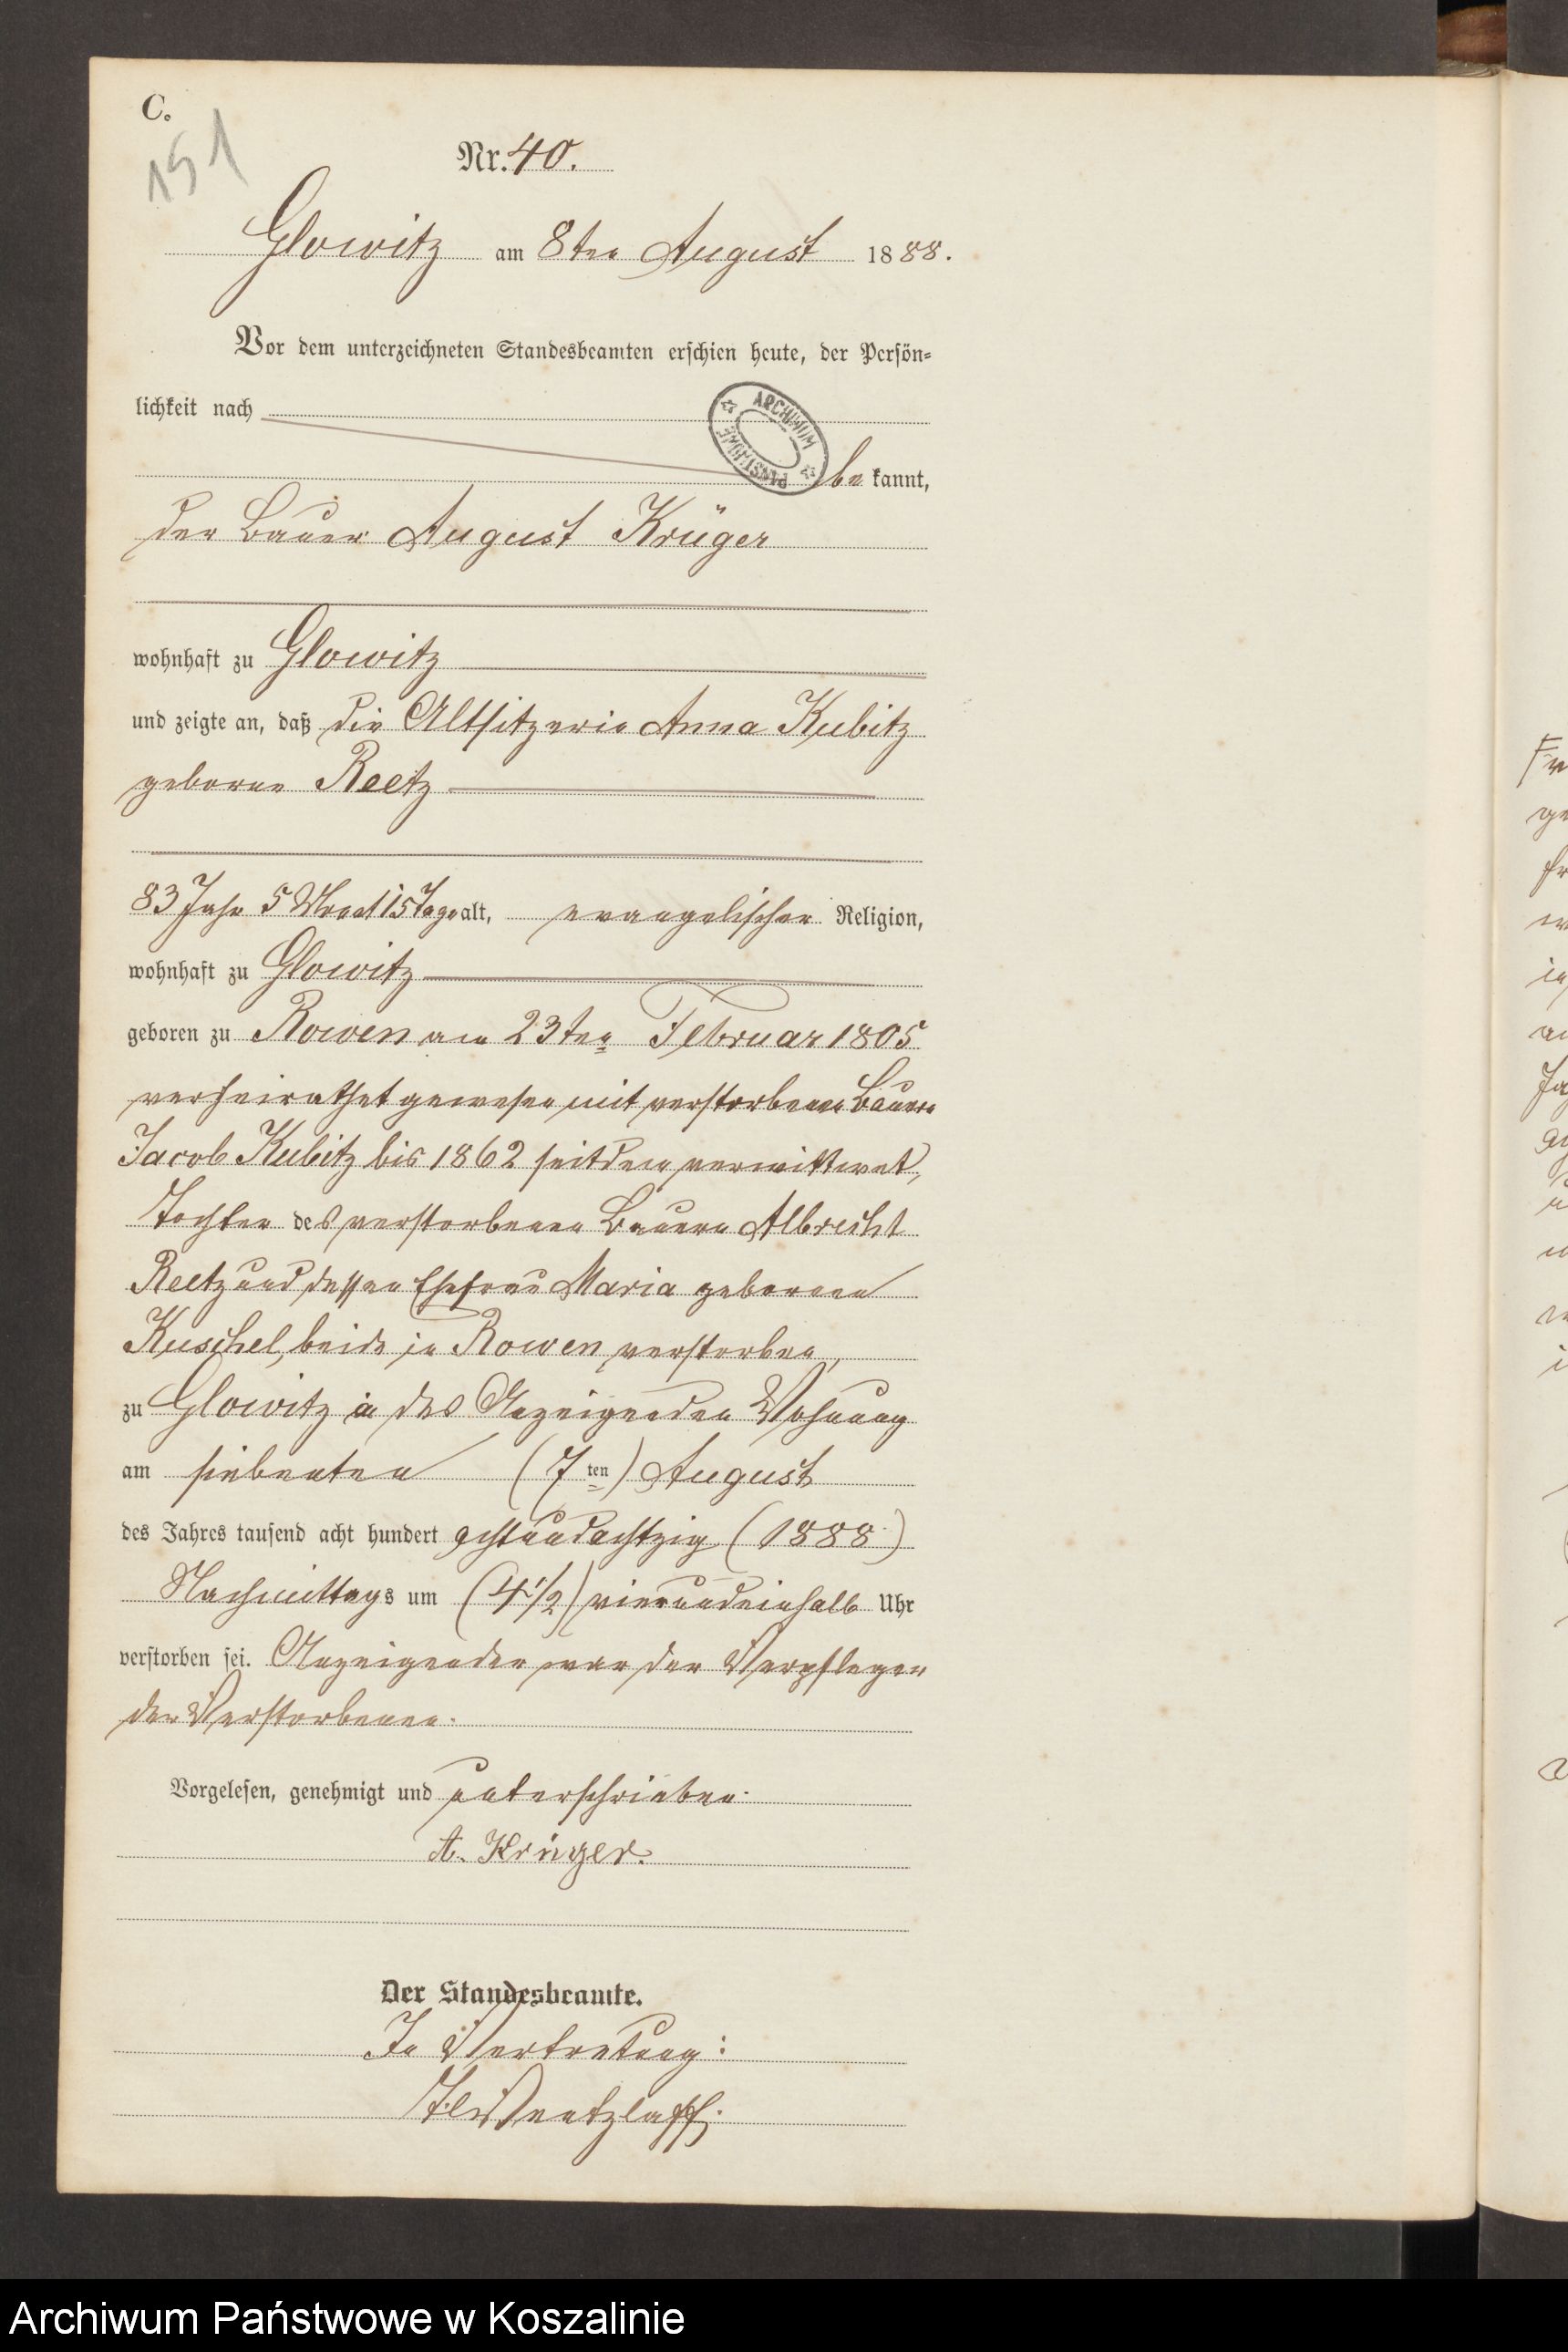 C.
151
Nr. 40.
Glowitz am 8ten August 1888.
Vor dem unterzeichneten Standesbeamten erschien heute, der Persön-
lichkeit nach
ARCHIWUM PAŃSTWOWE
bekannt,
der Bauer August Krüger
wohnhaft zu Glowitz
und zeigte an, daß die Altsitzerin Anna Kubitz
geborne Reetz
83 Jahr 5 Monat 15 Tage alt, evangelischer Religion,
wohnhaft zu Glowitz
geboren zu Rowen am 23ten Februar 1805
verheirathet gewesen mit verstorbenen Bauern
Jacob Kubitz bis 1862 seitdem verwittwet,
Tochter des verstorbenen Bauern Albrecht
Reetz und dessen Ehefrau Maria geborenen
Kuschel, beide in Rowen verstorben,
zu Glowitz in des Anzeigenden Wohnung
am siebenten (7ten) August
des Jahres tausend acht hundert achtundachtzig (1888)
Nachmittags um (4 1/2) viereundeinhalb Uhr
verstorben sei. Anzeigender war der Verpfleger
der Verstorbenen.
Vorgelesen, genehmigt und unterschrieben.
A. Krüger.
Der Standesbeamte.
In Vertretung:
Wentzlaff.
Archiwum Państwowe w Koszalinie